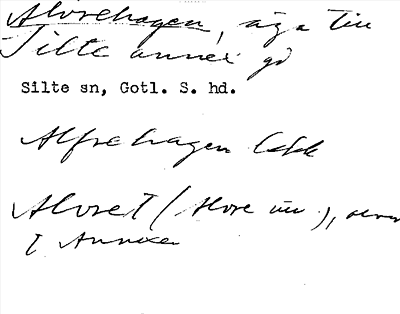 Alvrehagen, äga till
Silte annex gd
Silte sn, Gotl. S. hd.
Alfrehagen Ekk
Alvret (Alvre
t Annexen